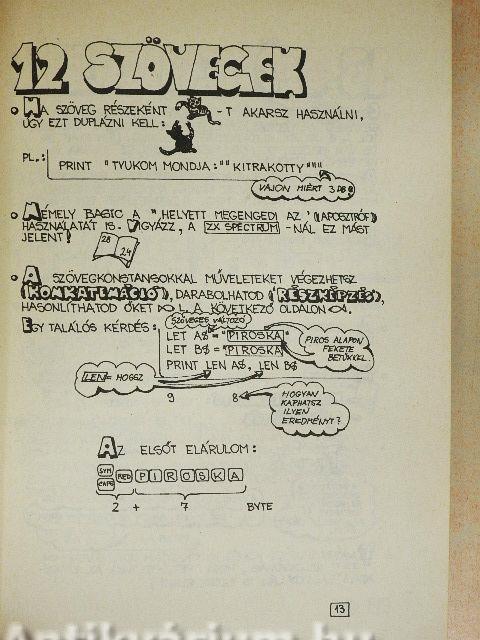 12 SZÖVEGEK
• HA SZÖVEG RÉSZEKÉNT -T AKARSZ HASZNÁLNI,
ÚGY EZT DUPLÁZNI KELL:
PL.: PRINT "TYUKOM MONDJA:""KITRAKOTTY"""
VAJON MIÉRT 3 DB
• NÉMELY BASIC A " HELYETT MEGENGEDI AZ ' (APOSZTRÓF)
HASZNÁLATÁT IS. VIGYÁZZ, A ZX SPECTRUM -NÁL EZ MÁST
JELENT!
28 24
• A SZÖVEGKONSTANSOKKAL MŰVELETEKET VÉGEZHETSZ
(KONKATENÁCIÓ), DARABOLHATOD (RÉSZKÉPZÉS),
HASONLÍTHATOD ŐKET L. A KÖVETKEZŐ OLDALON
EGY TALÁLÓS KÉRDÉS:
SZÖVEGES VÁLTOZÓ
LET A$="PIROSKA"
LET B$="PIROSKA"
PRINT LEN A$, LEN B$
PIROS ALAPON
FEKETE
BETŰKKEL
LEN = HOSSZ
9 8
HOGYAN
KAPHATSZ
ILYEN
EREDMÉNYT?
AZ ELSŐT ELÁRULOM:
SYM
CAPS RED P I R O S K A
2 + 7 BYTE
13
Antikvárium.hu